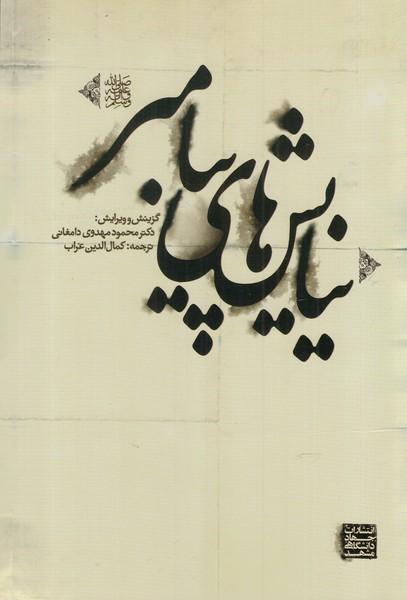 نیایش‌های پیامبر
صلی الله علیه و آله وسلم
گزینش و ویرایش:
دکتر محمود مهدوی دامغانی
ترجمه: کمال‌الدین غراب
انتشارات
جهاد
دانشگاهی
مشهد